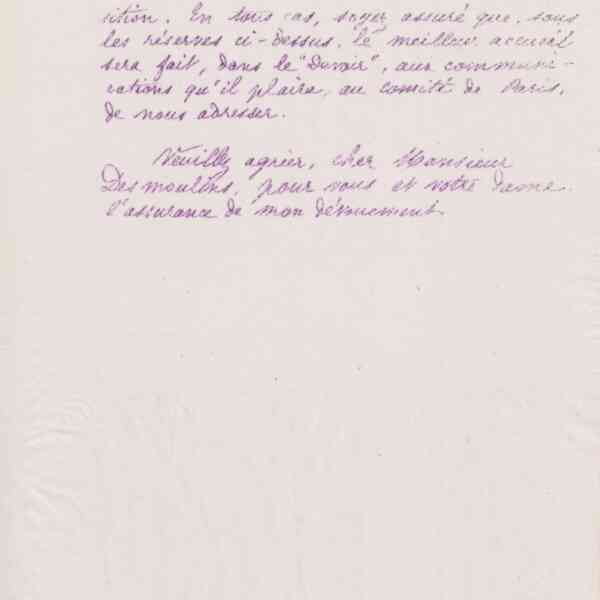 sition. En tous cas, soyez assuré que, sous
les réserves ci-dessus, le meilleur accueil
sera fait, dans le "Devoir", aux communi-
cations qu'il plaira, au comité de Paris,
de nous adresser.
Veuillez agréer, cher Monsieur
Desmoulins, pour vous et votre dame
l'assurance de mon dévouement.